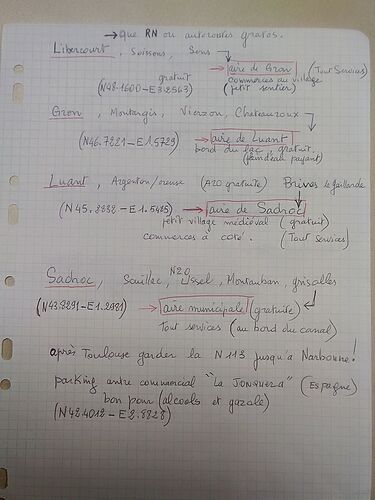 → que RN ou autoroutes gratos.
Libercourt, Soissons, Sens
→ aire de Gron (Tout Services)
gratuit commerces au village
(N48.1600 - E3.2563) (petit sentier)
Gron, Montargis, Vierzon, Chateauroux
(N46.7221 - E1.5729) → aire de Luant
bord du lac, gratuit,
(panneau payant)
Luant, Argenton/creuse (A20 gratuite) Brives la gaillarde
(N45. - E1.) → aire de Sadroc
petit village médiéval (gratuit)
commerces à coté. (Tout services)
Sadroc, Souillac, N20 Ussel, Montauban, grisolles
(N43.8291 - E1.2981) → aire municipale (gratuite)
Tout services (au bord du canal)
après Toulouse garder la N113 jusqu'à Narbonne!
parking centre commercial "La JONQUERA" (Espagne)
bon pour (alcools et gazole)
(N42.4012 - E2.8828)